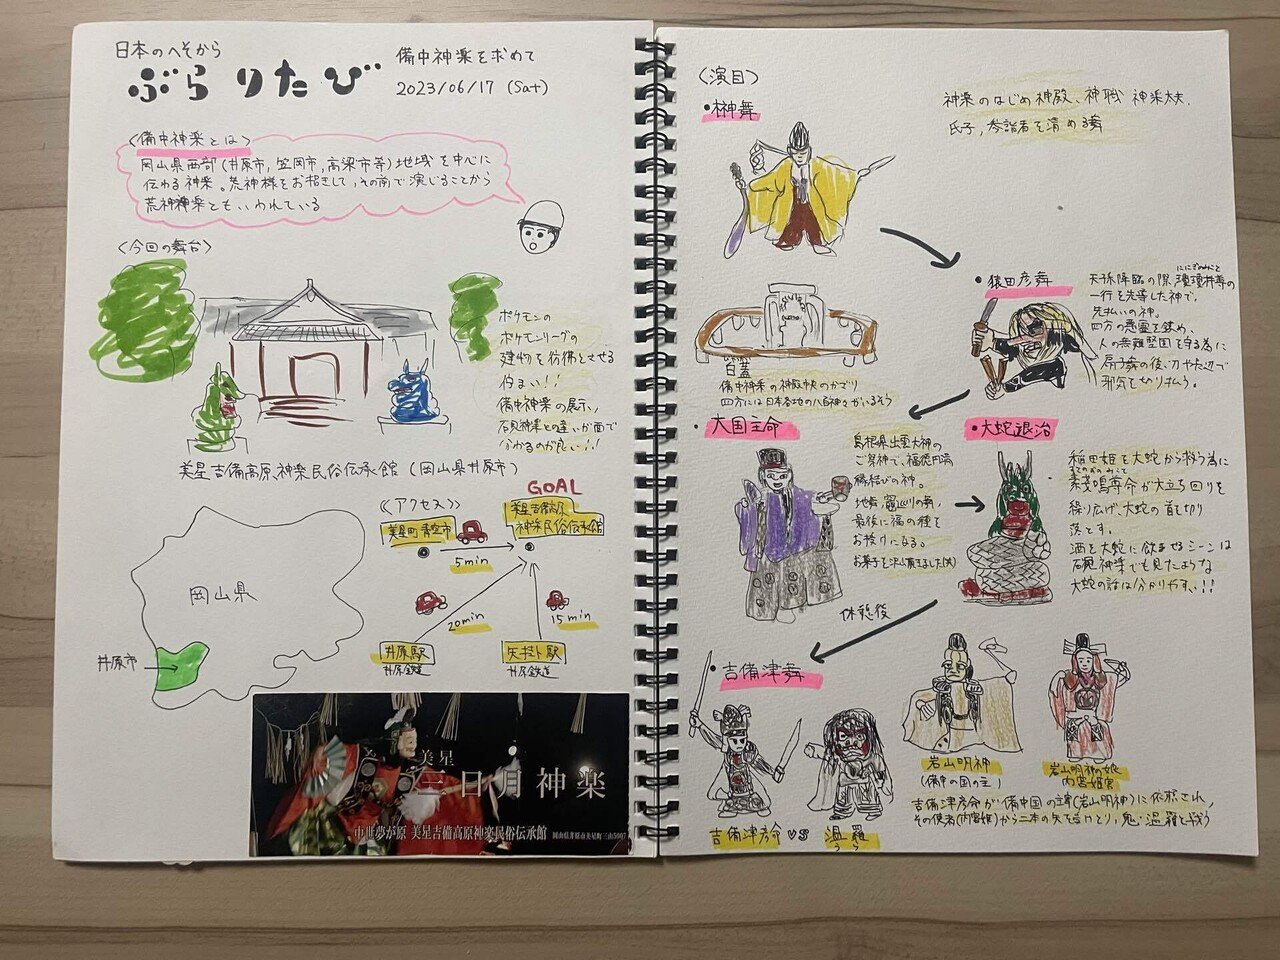 日本のへそから
ぶらりたび
備中神楽を求めて
2023/06/17 (Sat)
〈備中神楽とは〉
岡山県西部(井原市,笠岡市,高梁市等)地域を中心に
伝わる神楽。荒神様をお招きして,その前で演じることから
荒神神楽ともいわれている
〈今回の舞台〉
ポケモンの
ポケモンリーグの
建物を彷彿とさせる
佇まい!!
備中神楽の展示、
石見神楽との違いが面で
分かるのが良い!!
美星吉備高原神楽民俗伝承館(岡山県井原市)
《アクセス》
GOAL
美星町青空市
美星吉備高原
神楽民俗伝承館
5min
20min
15min
井原駅
井原鉄道
矢掛駅
井原鉄道
岡山県
井原市
美星
三日月神楽
中世夢が原 美星吉備高原神楽民俗伝承館
岡山県井原市美星町三山5007
〈演目〉
・榊舞
神楽のはじめ神殿、神職 神楽太夫、
氏子,参詣者を清める舞
・猿田彦舞
ににぎのみこと
天孫降臨の際,瓊瓊杵尊の
一行を先導した神で、
先払いの神。
四方の悪霊を鎮め、
人の無難堅固を守る為に
扇子舞の後、刀や長刀で
邪気を切り払う。
白蓋
備中神楽の神殿中央のかざり
四方には日本各地の八百神々がいるそう
・大国主命
島根県出雲大神の
ご祭神で、福徳円満
縁結びの神。
最後に福の種を
お授けになる。
お菓子を沢山頂きました(笑)
・大蛇退治
稲田姫を大蛇から救う為に
すさのおのみこと
素戔嗚尊命が大立ち回りを
繰り広げ、大蛇の首を切り
落とす。
酒を大蛇に飲ませるシーンは
石見神楽でも見たような
大蛇の話は分かりやすい!!
休憩後
・吉備津舞
岩山明神
(備中の国の主)
岩山明神の娘
内宮姫宮
吉備津彦命が備中国の主神(岩山明神)に依頼され、
その使者(内宮姫)から二本の矢を受けとり,鬼・温羅と戦う
吉備津彦命 VS 温羅
うら